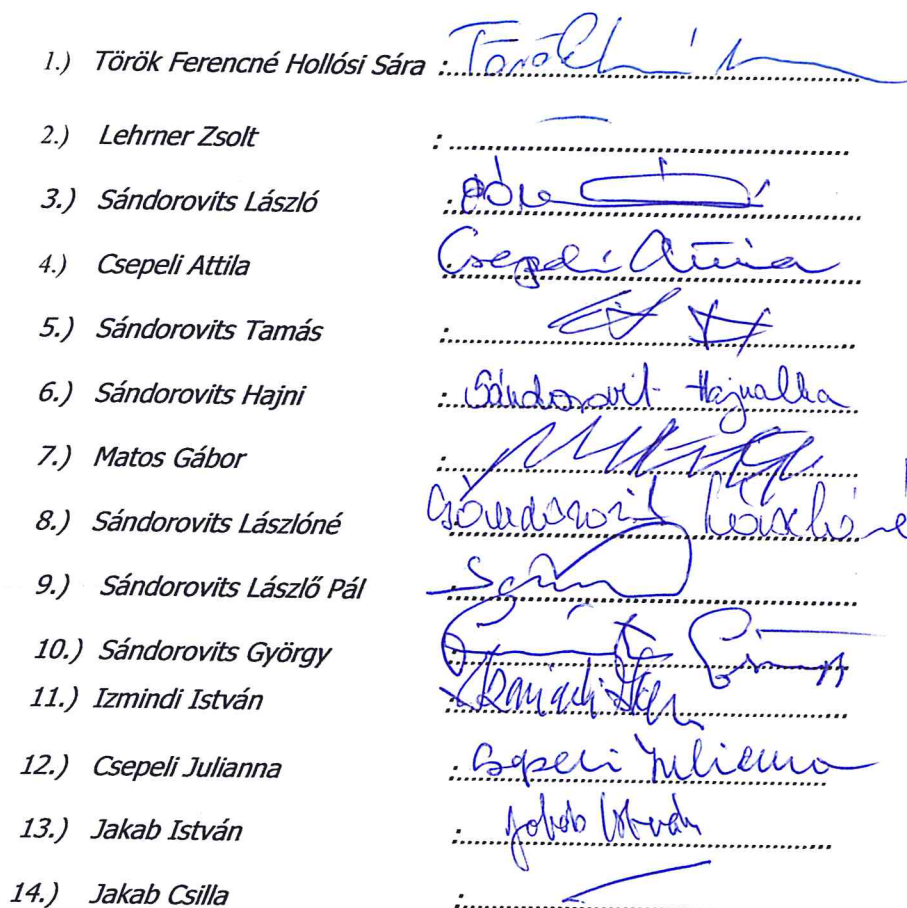 1.) Török Ferencné Hollósi Sára :
2.) Lehrner Zsolt :
3.) Sándorovits László :
4.) Csepeli Attila : Csepeli Attila
5.) Sándorovits Tamás :
6.) Sándorovits Hajni : Sándorovit Hajnalka
7.) Matos Gábor :
8.) Sándorovits Lászlóné Sándorovits Lászlóné
9.) Sándorovits Lászlő Pál :
10.) Sándorovits György :
11.) Izmindi István :
12.) Csepeli Julianna : Csepeli Julianna
13.) Jakab István : Jakab István
14.) Jakab Csilla :